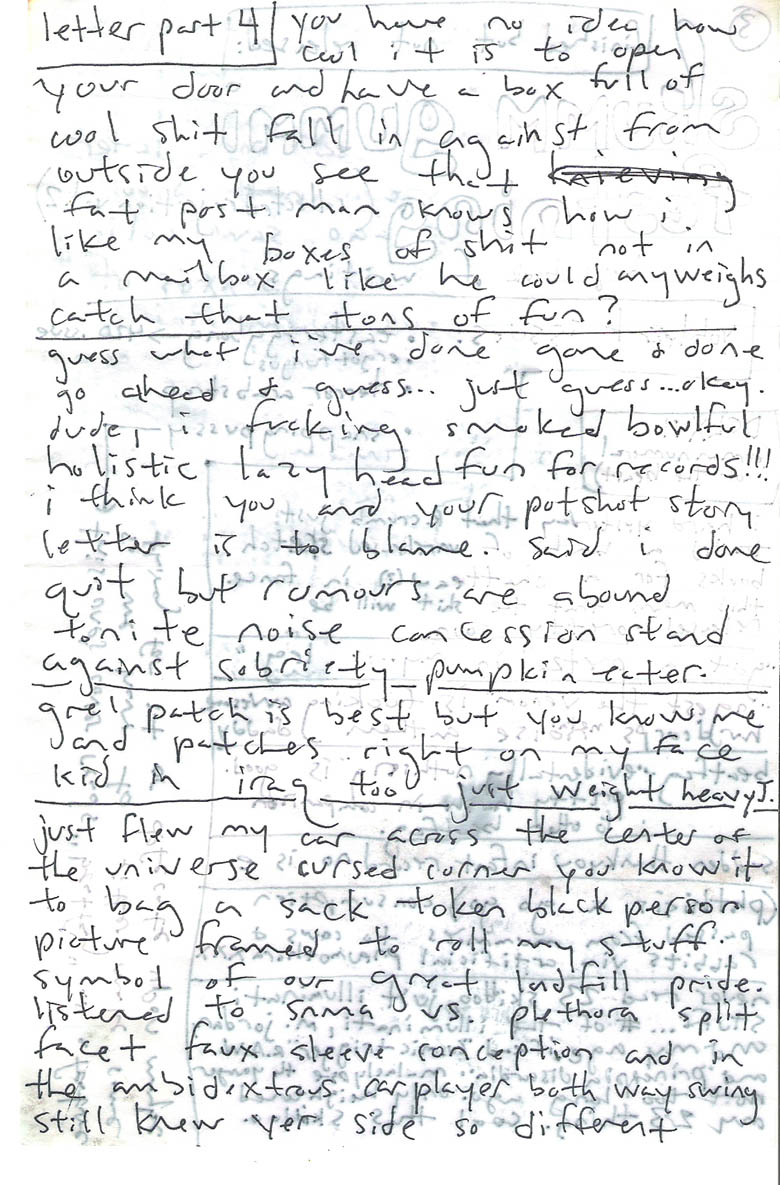 letter part 4 you have no idea how
cool it is to open
your door and have a box full of
cool shit fall in against from
outside you see that
fat post man knows how i
like my boxes of shit not in
a mailbox like he could anyweighs
catch that tons of fun?
guess what i've done gone & done
go ahead & guess... just guess...okay.
dude, i fucking smoked bowlful
holistic lazy head fun for records!!!
i think you and your potshot story
letter is to blame. said i done
quit but rumours are abound
tonite noise concession stand
against sobriety pumpkin eater.
grel patch is best but you know me
and patches right on my face
kid in iraq too just weight heavy J.
just flew my car across the center of
the universe cursed corner you know it
to bag a sack token black person
picture framed to roll my stuff.
symbol of our great landfill pride.
listened to vs. plethora split
facet faux sleeve conception and in
the ambidextrous carplayer both way swing
still knew yer side so different